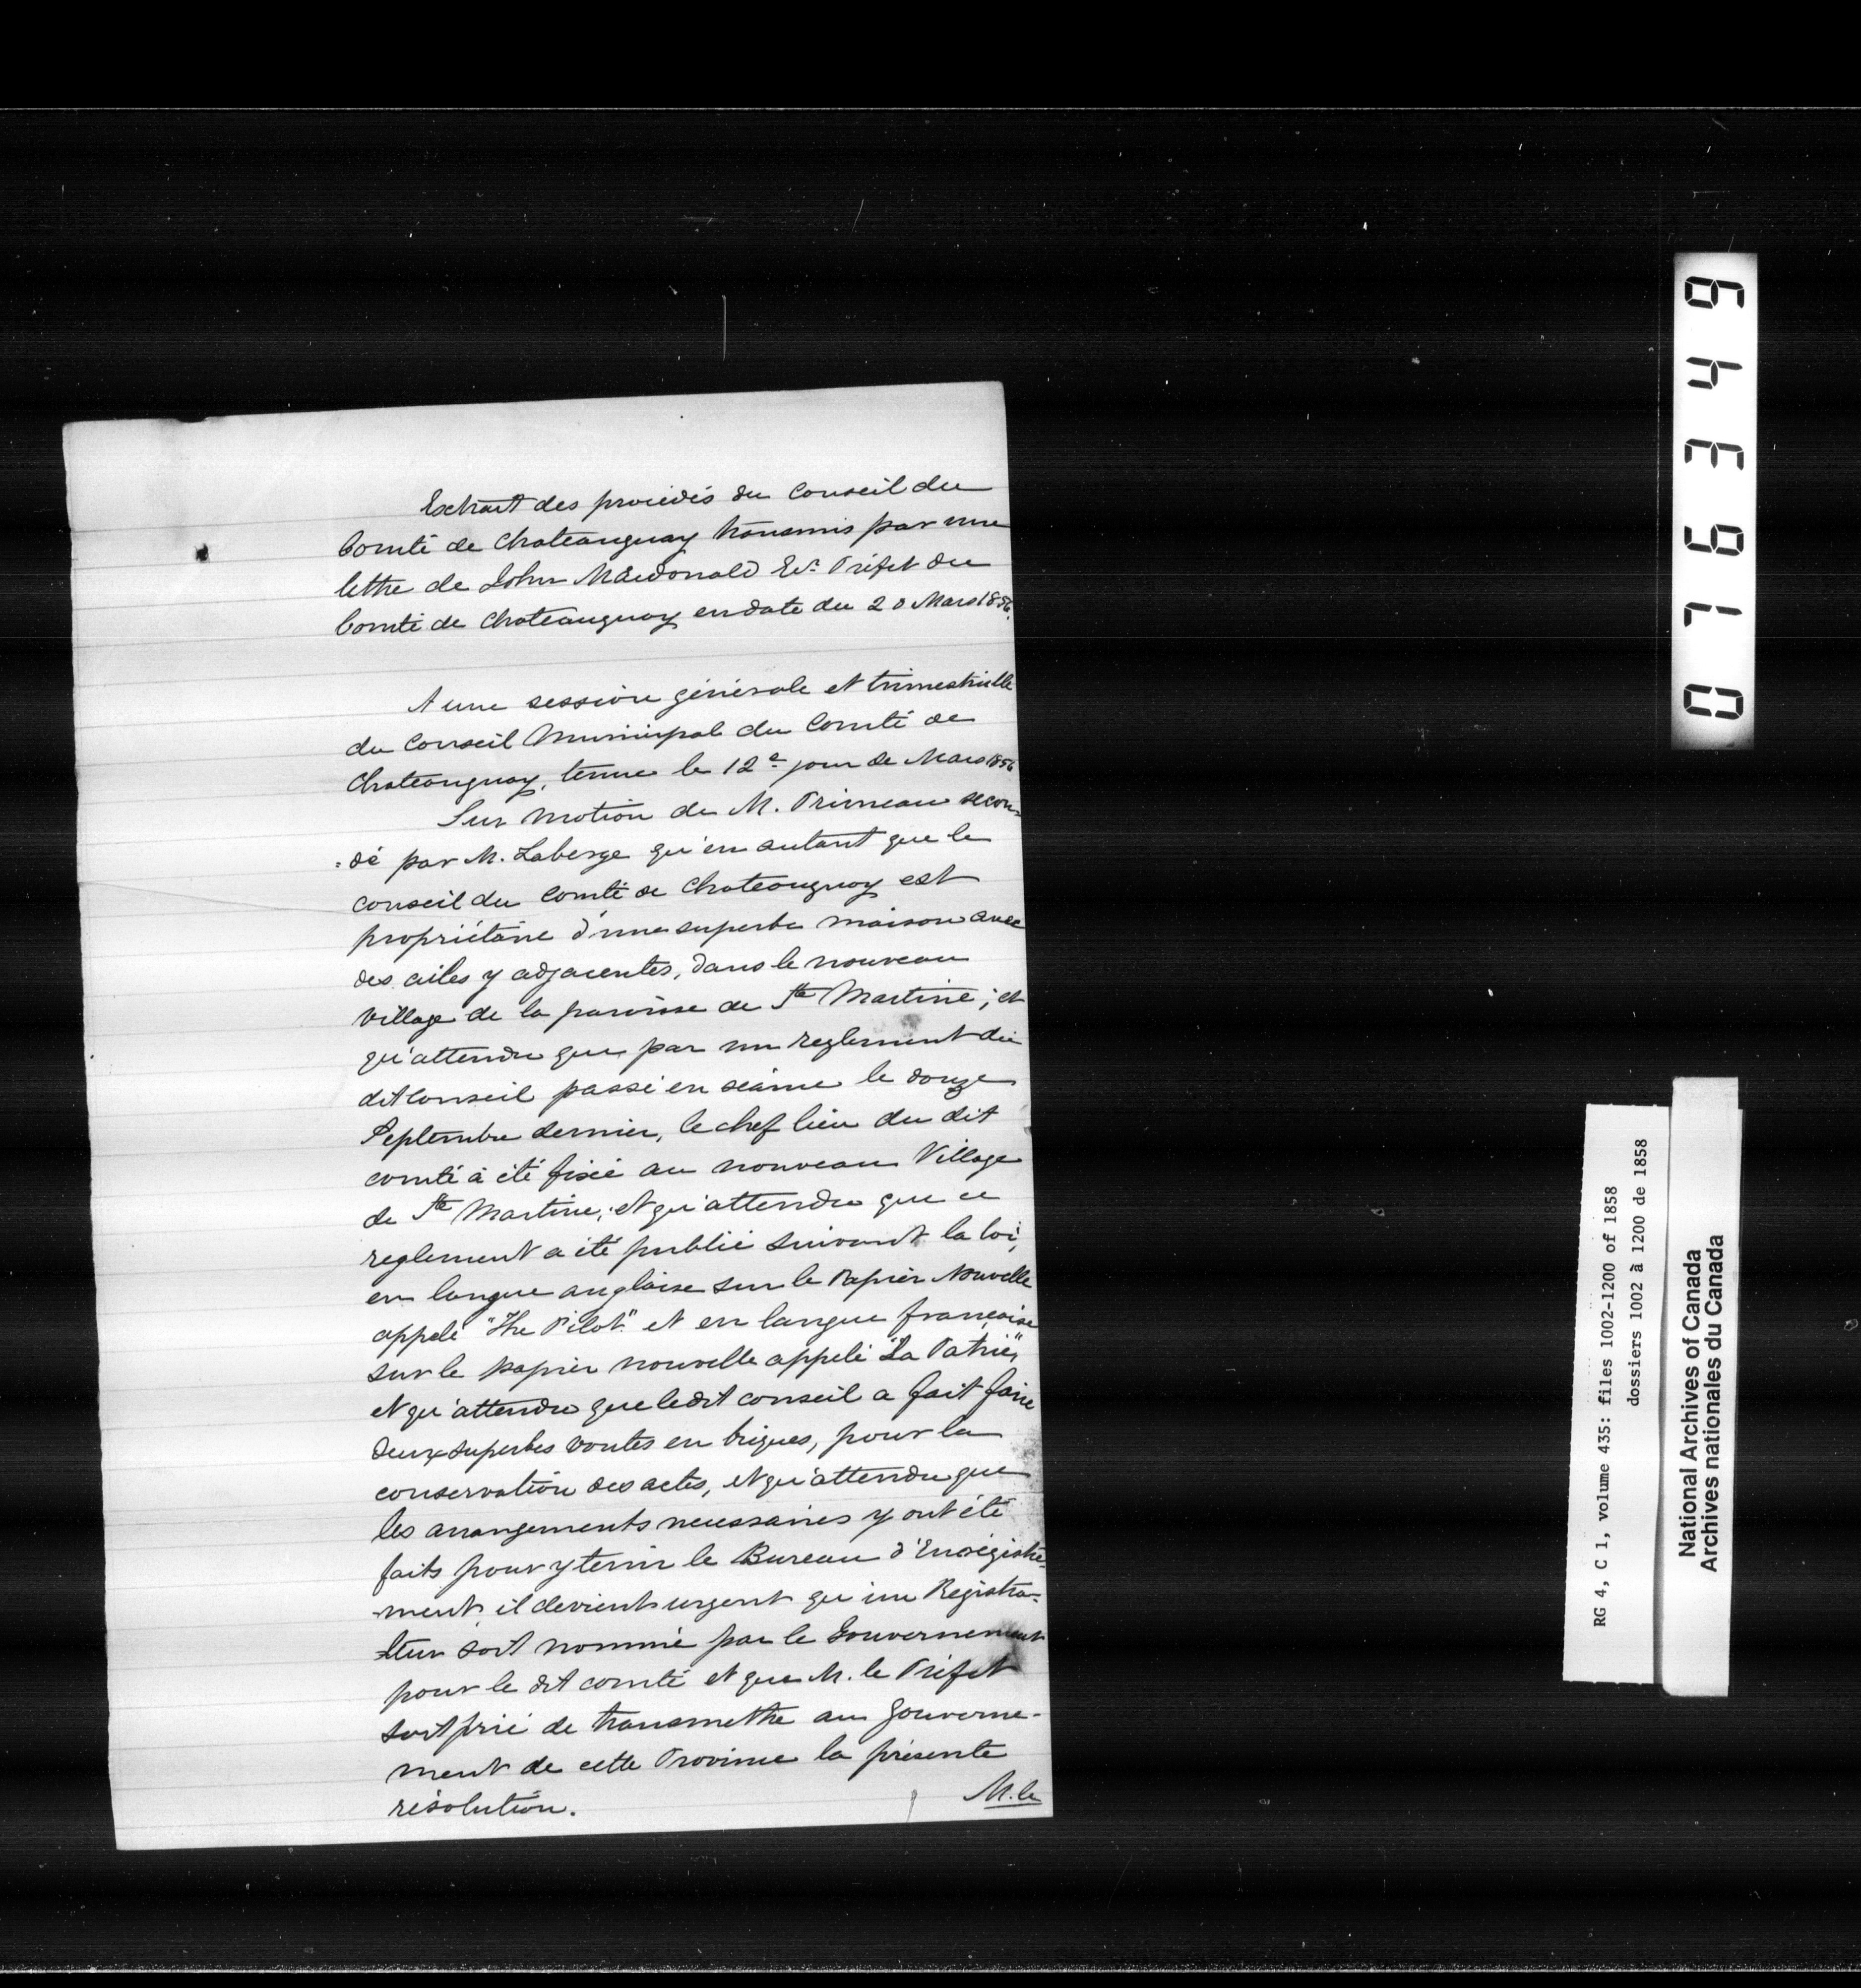 Extrait des procédés du Conseil du
Comté de Chateauguay transmis par une
lettre de John MacDonald Ecr. Préfet du
Comté de Chateauguay en date du 20 Mars 1856.
A une session générale et trimestrielle
du Conseil Municipal du Comté de
Chateauguay, tenue le 12e jour de Mars 1856
Sur motion de M. Primeau secon=
=dé par M. Laberge qu'en autant que le
conseil du Comté de Chateauguay est
propriétaire d'une superbe maison avec
des ailes y adjacentes, dans le nouveau
village de la paroisse de Ste Martine; et
qu'attendu que par un reglement du
dit Conseil passé en séance le douze
Septembre dernier, le chef lieu du dit
comté à été fixé au nouveau Village
de Ste Martine; et qu'attendu que ce
reglement a été publié suivant la loi,
en langue anglaise sur le Papier Nouvelle
appelé "The Pilot" et en langue française
sur le papier nouvelle appelé "La Patrie",
et qu'attendu que ledit conseil a fait faire
deux superbes voutes en briques, pour la
conservation des actes, et qu'attendu que
les arrangements necessaires y ont été
faits pour y tenir le Bureau d'Enrégistre-
-ment, il devient urgent qu'un Registra-
-teur soit nommé par le Gouvernement
pour le dit comté et que M. le Préfet
soit prié de transmettre au Gouverne-
ment de cette Province la présente
résolution.
M. le
076349
RG 4, C 1, volume 435: files 1002-1200 of 1858
dossiers 1002 à 1200 de 1858
National Archives of Canada
Archives nationales du Canada